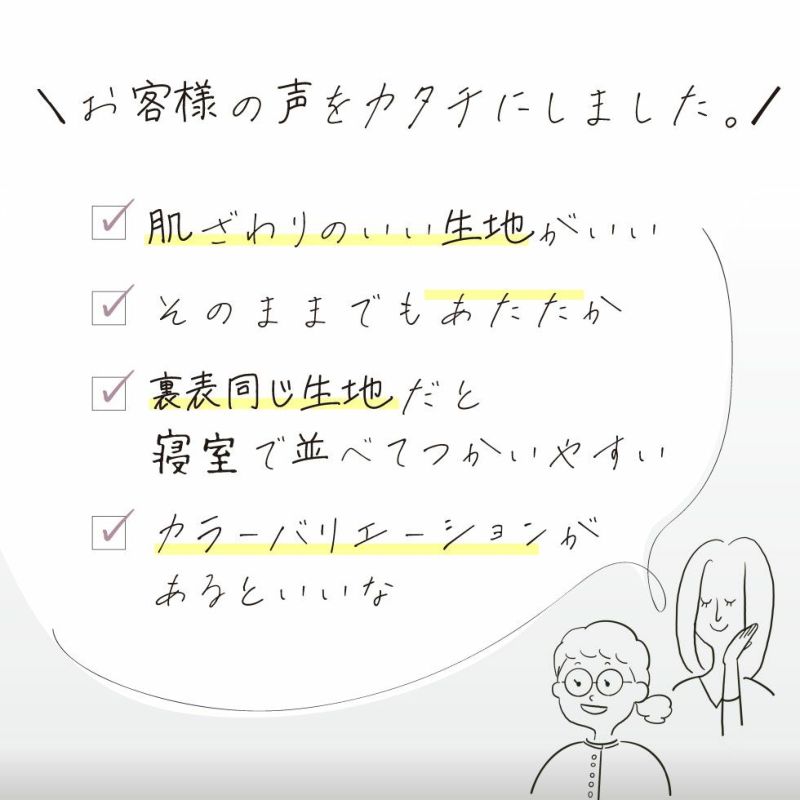 \お客様の声をカタチにしました。/
肌ざわりのいい生地がいい
そのままでもあたたか
裏表同じ生地だと
寝室で並べてつかいやすい
カラーバリエーションが
あるといいな